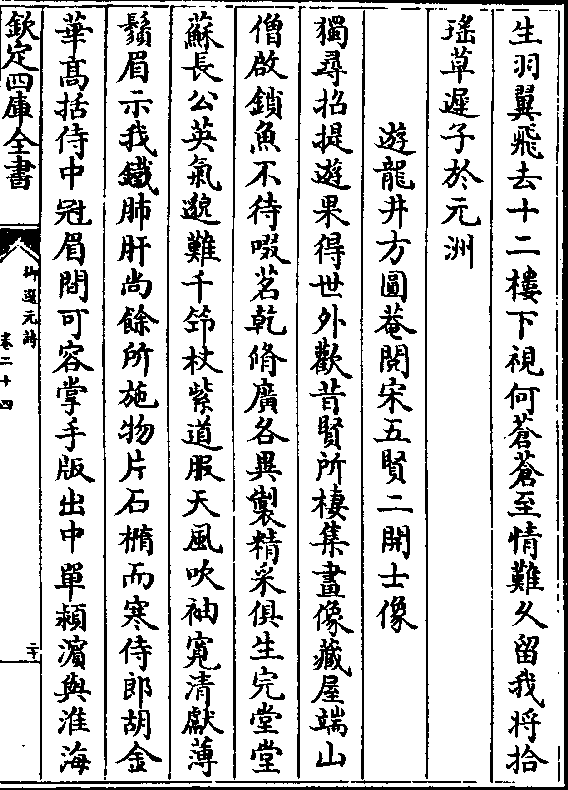 生羽翼飛去十二樓下視何蒼蒼至情難久留我將拾
瑤草遲子於元洲
遊龍井方圓菴閱宋五賢二開士像
獨尋招提遊果得世外歡昔賢所棲集畫像藏屋端山
僧啟鎖魚不待啜茗乾脩廣各異製精采俱生完堂堂
蘇長公英氣邈難千筇杖紫道服天風吹袖寛清獻薄
鬚眉示我鐵肺肝尚餘所施物片石橢而寒侍郎胡金
華髙括侍中冠眉間可容掌手版出中單潁濵與淮海
欽定四庫全書
御選元詩
卷二十四
二十